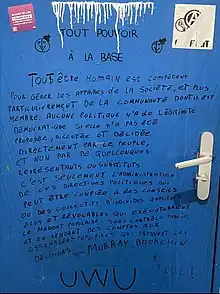 TOUT POUVOIR
À LA BASE
TOUT ÊTRE HUMAIN EST COMPÉTENT
POUR GÉRER LES AFFAIRES DE LA SOCIÉTÉ, ET PLUS
PARTICULIÈREMENT DE LA COMMUNAUTÉ DONT IL EST
MEMBRE. AUCUNE POLITIQUE N'A DE LÉGITIMITÉ
DÉMOCRATIQUE SI ELLE N'A PAS ÉTÉ
PROPOSÉE, DISCUTÉE ET DÉCIDÉE
DIRECTEMENT PAR LE PEUPLE,
ET NON PAR DE QUELCONQUES
REPRÉSENTANTS OU SUBSTITUTS
C'EST SEULEMENT L'ADMINISTRATION
DE CES DIRECTIVES POLITIQUES QUI
PEUT ÊTRE CONFIÉE À DES CONSEILS
OU DES COLLECTIFS D'INDIVIDUS QUALIFIÉS,
ÉLUS ET RÉVOCABLES QUI EXÉCUTERAIENT
LE MANDAT POPULAIRE SOUS CONTRÔLE PUBLIC
ET EN RENDANT DES COMPTES AUX
ASSEMBLÉES POPULAIRES QUI PRENNENT LES
DÉCISIONS - MURRAY BOOKCHIN
UWU
OUI!